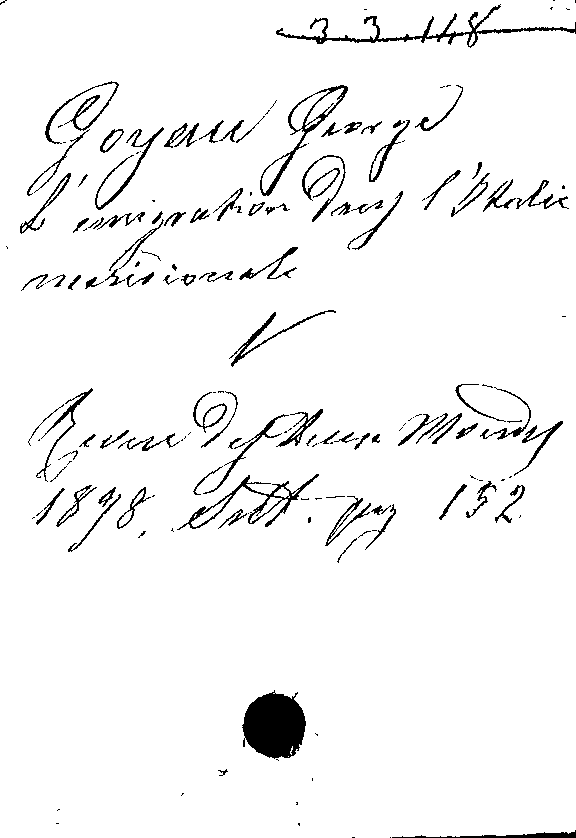 3.3.148
Goyau George
L'émigration dans l'Italie
meridionale
V
Revue des Deux Mondes
1898. Sett. pag 152